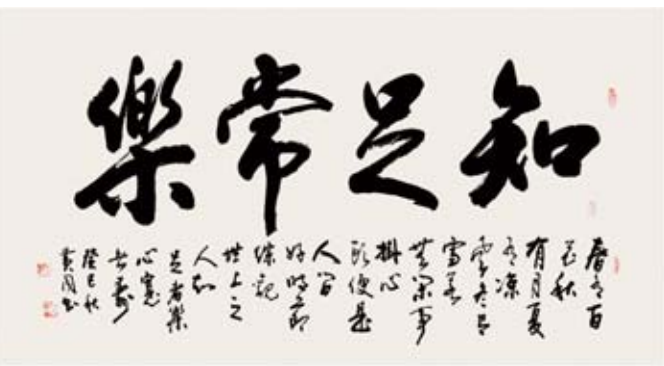 知足常樂
春有百
花秋
有月夏
有凉
風冬有
雪若
無閑事
掛心
頭便是
人間
好時節
綜觀
世上之
人知
足者樂
心寬
者壽
癸巳秋